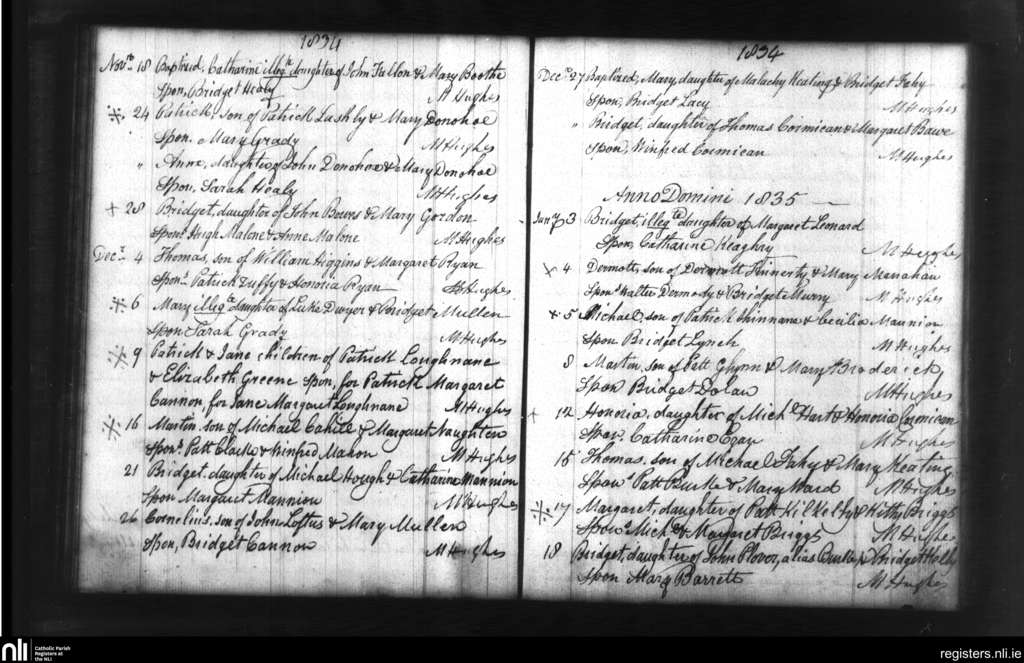 1834
Novr 18 Baptised, Catharine illegte daughter of John Fallon & Mary Boothe
Spon, Bridget Healy M Hughes
24 Patrick, son of Patrick Lashly & Mary Donohoe
Spon. Mary Grady M Hughes
" Anne, daughter of John Donohoe & Mary Donohoe
Spon, Sarah Healy M Hughes
+ 28 Bridget, daughter of John Bowns & Mary Gordon
Spons Hugh Malone & Anne Malone M Hughes
Decr 4 Thomas, son of William Higgins & Margaret Ryan
Spons Patrick Duffy & Honoria Ryan M Hughes
6 Mary illegte daughter of Luke Dwyer & Bridget Mullen
Spon Sarah Grady M Hughes
9 Patrick & Jane children of Patrick Loughnane
& Elizabeth Greene Spon, for Patrick Margaret
Cannon, for Jane Margaret Loughnane M Hughes
16 Martin, son of Michael Cahill & Margaret Naughten
Spons Patt Clarke & Winfred Mahon M Hughes
21 Bridget, daughter of Michael Hough & Catharine Mannion
Spon Margaret Mannion M Hughes
26 Cornelius, son of John Loftus & Mary Mullen
Spon, Bridget Cannon M Hughes
1834
Decr 27 Baptised, Mary, daughter of Malachy Keating & Bridget Fahy
Spon, Bridget Lacy M Hughes
" Bridget, daughter of Thomas Cormican & Margaret Bawe
Spon, Winfred Cormican M Hughes
Anno Domini 1835
Jany 3 Bridget, illegte daughter of Margaret Leonard
Spon, Catharine Heaghry M Hughes
x 4 Dermott, son of Dermott Finnerty & Mary Menahan
Spons Walter Dermody & Bridget Murry M Hughes
x 5 Michael, son of Patrick Shinnane & Cecilia Mannion
Spon Bridget Lynch M Hughes
8 Martin, son of Patt Glynn & Mary Broderick
Spon Bridget Dolan M Hughes
+ 12 Honoria, daughter of Michl Hart & Honoria Cormican
Spon. Catharine Egan M Hughes
15 Thomas, son of Michael Fahy & Mary Keating
Spons Patt Burke & Mary Ward M Hughes
17 Margaret, daughter of Patt Kilkelly & Kitty Briggs
Spons Michl & Margaret Briggs M Hughes
18 Bridget, daughter of John Plover, alias Burke & Bridget
Spon Mary Barrett M Hughes
nli Catholic Parish
Registers at
the NLI
registers.nli.ie